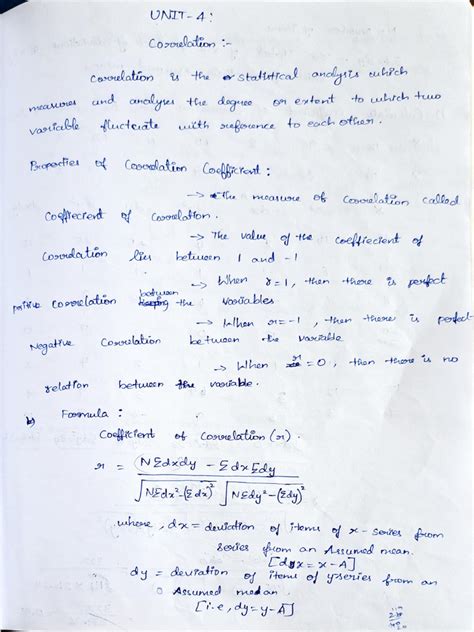 UNIT-4:
Correlation :-
Correlation is the statistical analysis which
measures and analyses the degree or extent to which two
variable fluctuate with reference to each other.
Properties of Correlation Coefficient :
→ The measure of Correlation called
Coefficient of Correlation.
→ The value of the coefficient of
Correlation lies between 1 and -1
→ When r=1, then there is perfect
positive correlation between the variables
→ When r=-1, then there is perfect
Negative Correlation between the variable
→ When r=0, then there is no
relation between the variable.
b) Formula :
Coefficient of Correlation (r).
r = NΣdxdy - ΣdxΣdy
√NΣdx²-(Σdx)² √NΣdy²-(Σdy)²
where, dx = deviation of items of x-series from
series from an Assumed mean.
[dx = x-A]
dy = deviation of items of y-series from an
Assumed
[i.e, dy=y-A]